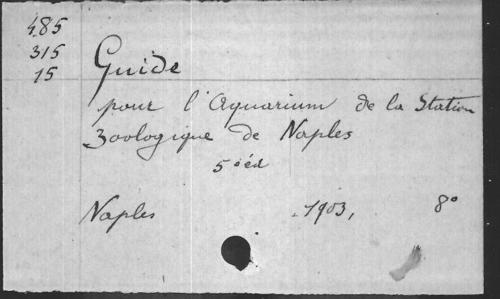 485
315
15
Guide
pour l'Aquarium de la Station
Zoologique de Naples
5º éd
Naples 1903, 8º